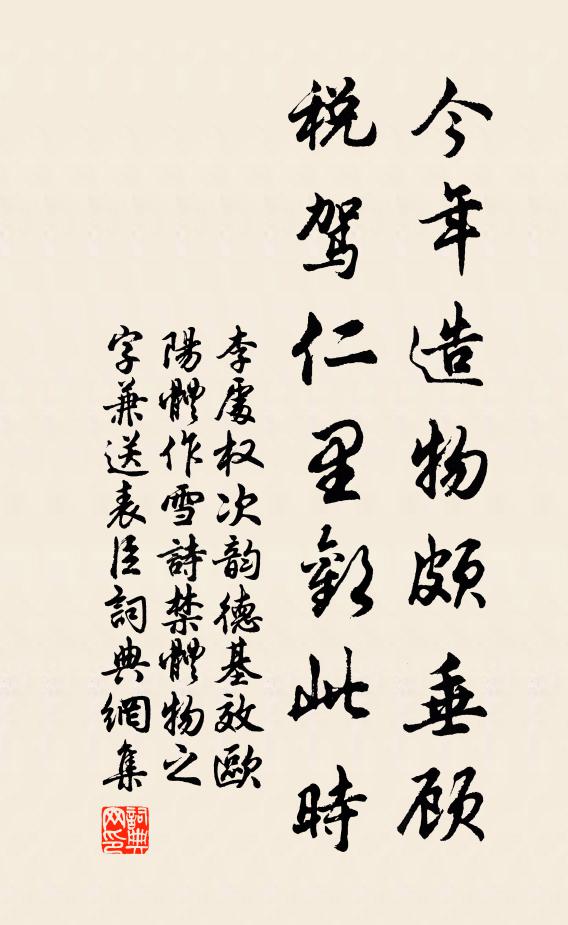 今年造物颇垂顾
税驾仁里歡此時
李處权次韵德基效歐
陽體作雪詩禁體物之
字兼送表臣詞典網集
詞典网印